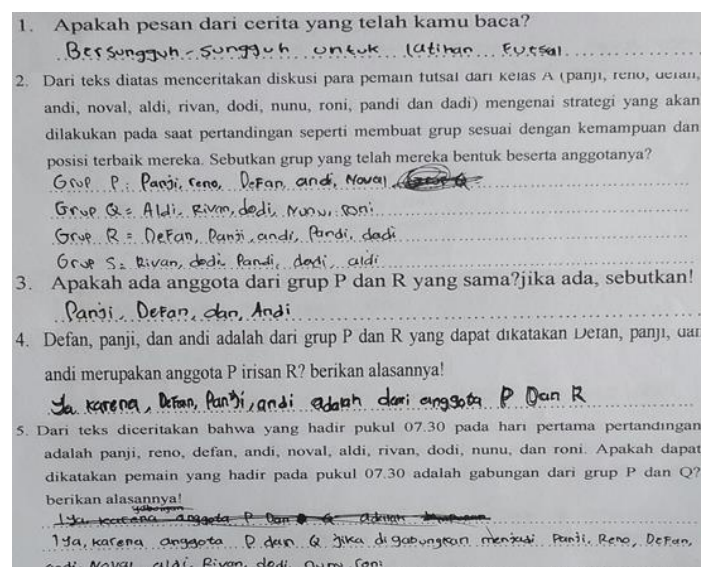 1. Apakah pesan dari cerita yang telah kamu baca?
Bersungguh-sungguh untuk latihan Futsal
2. Dari teks diatas menceritakan diskusi para pemain futsal dari kelas A (panji, reno, defan,
andi, noval, aldi, rivan, dodi, nunu, roni, pandi dan dadi) mengenai strategi yang akan
dilakukan pada saat pertandingan seperti membuat grup sesuai dengan kemampuan dan
posisi terbaik mereka. Sebutkan grup yang telah mereka bentuk beserta anggotanya?
Grup P: Panji, reno, Defan, andi, Noval
Grup Q = Aldi, Rivan, dodi, Nunu, Roni
Grup R = Defan, Panji, andi, Pandi, dadi
Grup S = Rivan, dodi, Pandi, dadi, aldi
3. Apakah ada anggota dari grup P dan R yang sama?jika ada, sebutkan!
Panji, Defan, dan, Andi
4. Defan, panji, dan andi adalah dari grup P dan R yang dapat dikatakan Defan, panji, dan
andi merupakan anggota P irisan R? berikan alasannya!
Ya karena, Defan, Panji, andi adalah dari anggota P Dan R
5. Dari teks diceritakan bahwa yang hadir pukul 07.30 pada hari pertama pertandingan
adalah panji, reno, defan, andi, noval, aldi, rivan, dodi, nunu, dan roni. Apakah dapat
dikatakan pemain yang hadir pada pukul 07.30 adalah gabungan dari grup P dan Q?
berikan alasannya!
gabungan
Iya karena anggota P Dan Q adalah
Iya, karena anggota P dan Q jika digabungkan menjadi Panji, Reno, Defan,
andi Noval aldi, Rivan, dodi, nunu roni